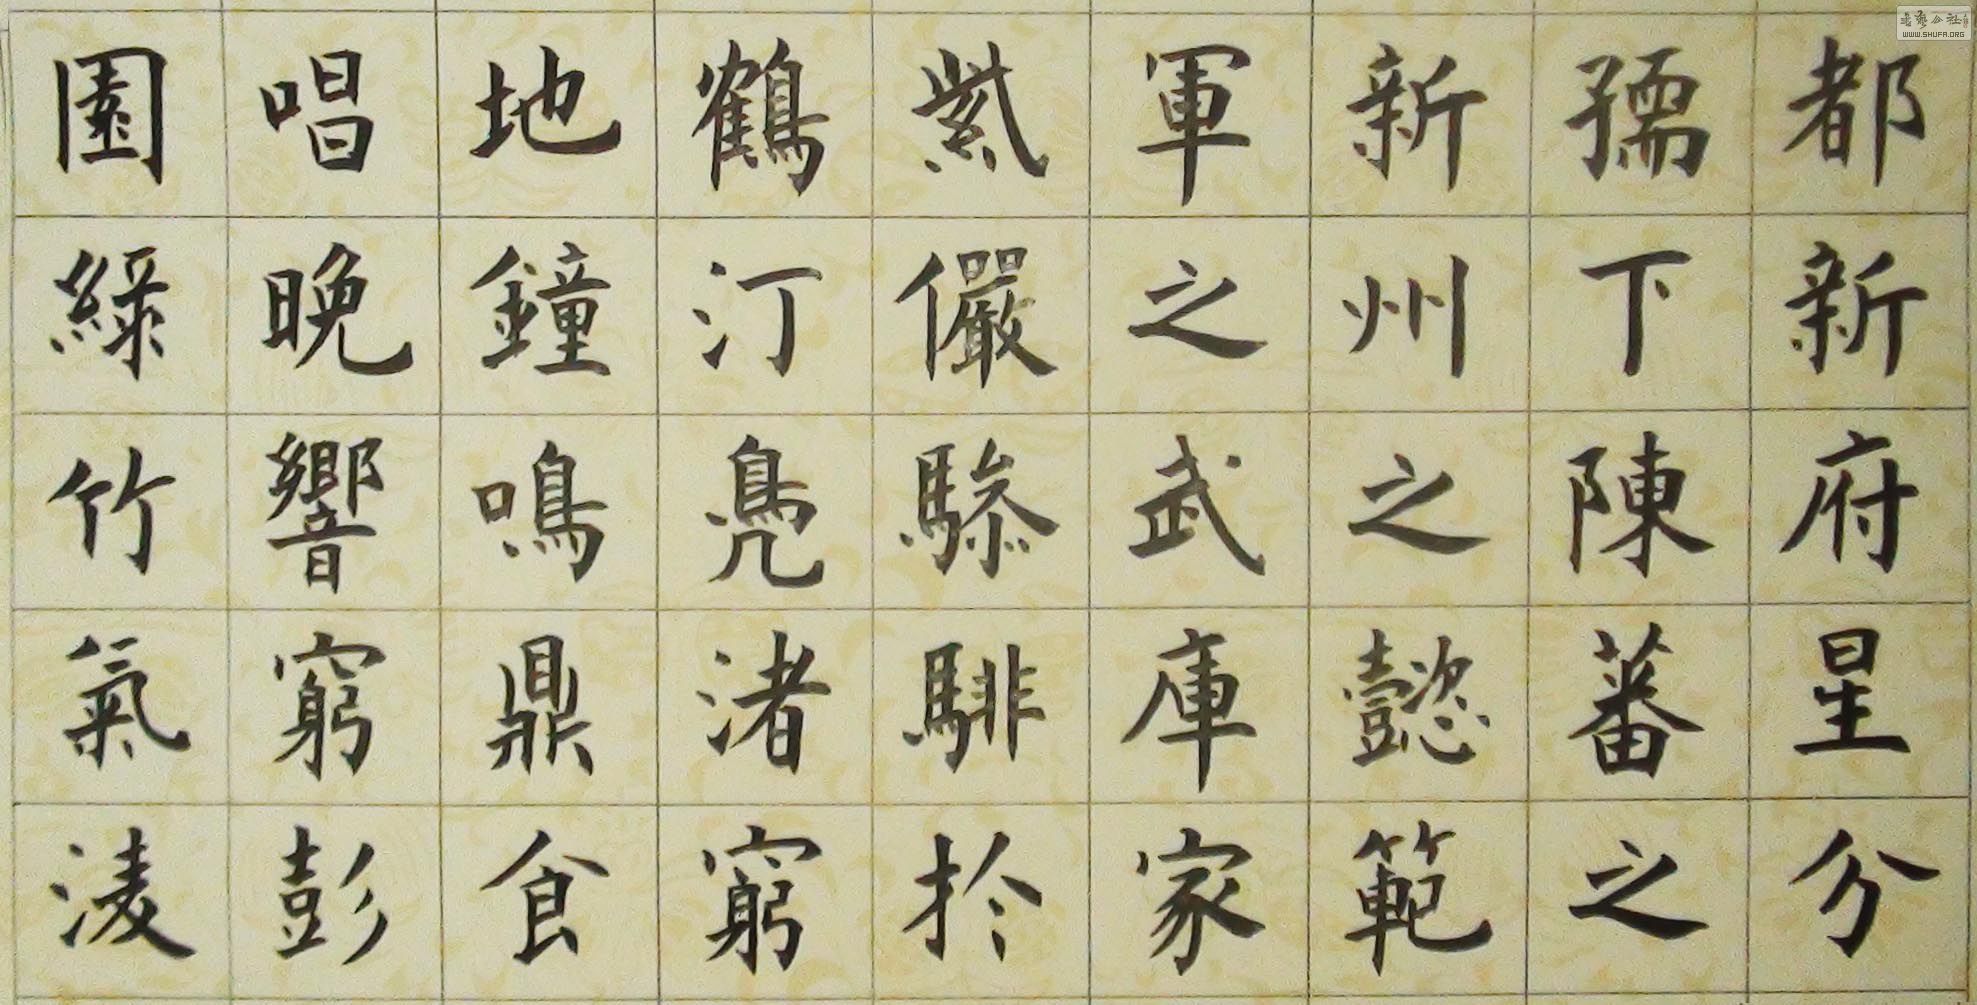 都新府星分
孺下陳蕃之
新州之懿範
軍之武庫家
紫儼驂騑於
鶴汀鳧渚窮
地鐘鳴鼎食
唱晚響窮彭
園綠竹氣淩
WWW.SHUFA.ORG